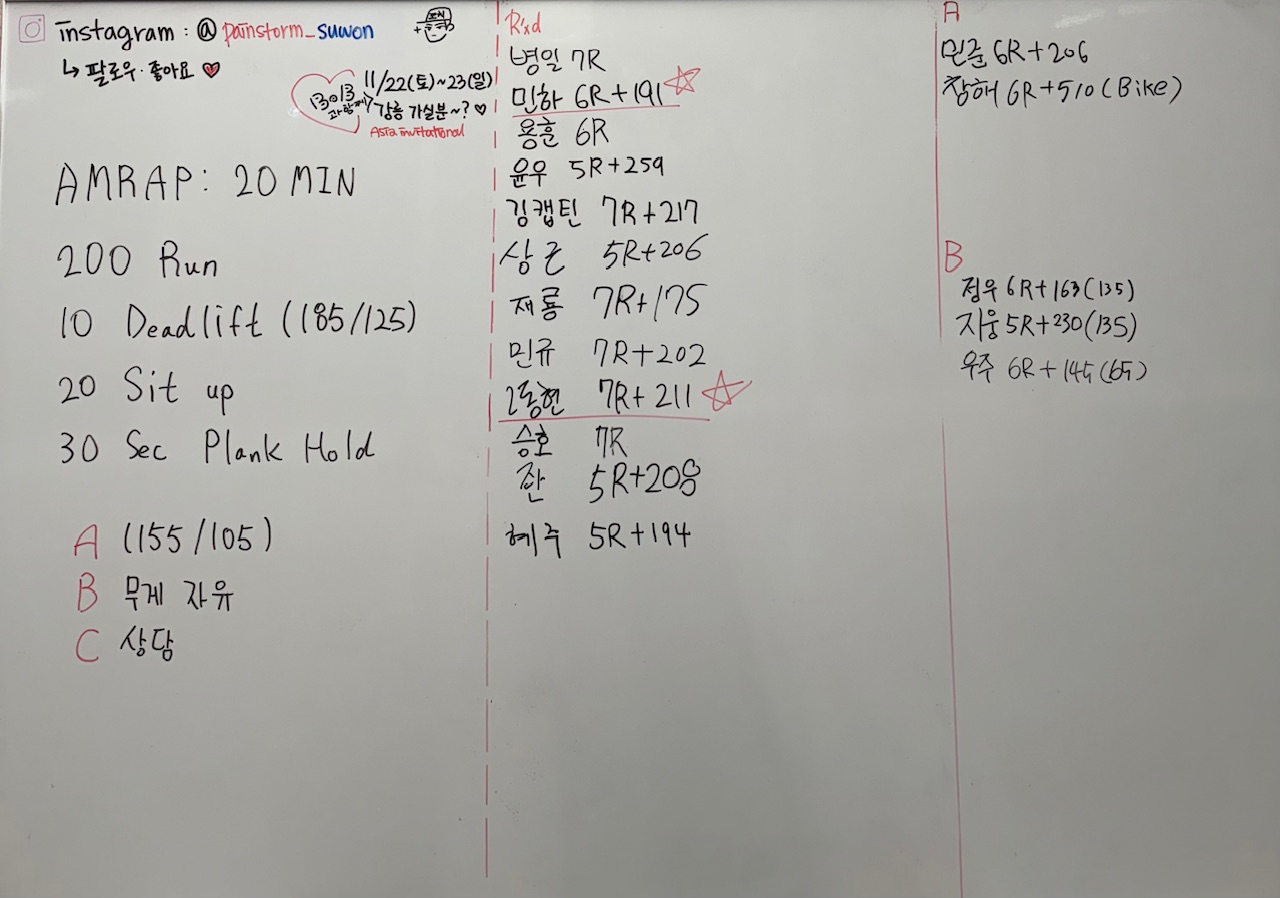 instagram : @ painstorm_suwon
↳ 팔로우·좋아요 ♥
11/22(토)~23(일)
강릉 가실분~? ♡
Asia invitational
AMRAP: 20 MIN
200 Run
10 Deadlift (185/125)
20 Sit up
30 Sec Plank Hold
A (155/105)
B 무게 자유
C 상담
R'xd
병일 7R
민하 6R+191 ☆
용훈 6R
윤우 5R+259
김캡틴 7R+217
상근 5R+206
재룡 7R+175
민규 7R+202
2동현 7R+211 ☆
승호 7R
5R+208
혜주 5R+194
A
민준 6R+206
창해 6R+510 (Bike)
B
정우 6R+163(135)
지웅 5R+230(135)
우주 6R+145(65)